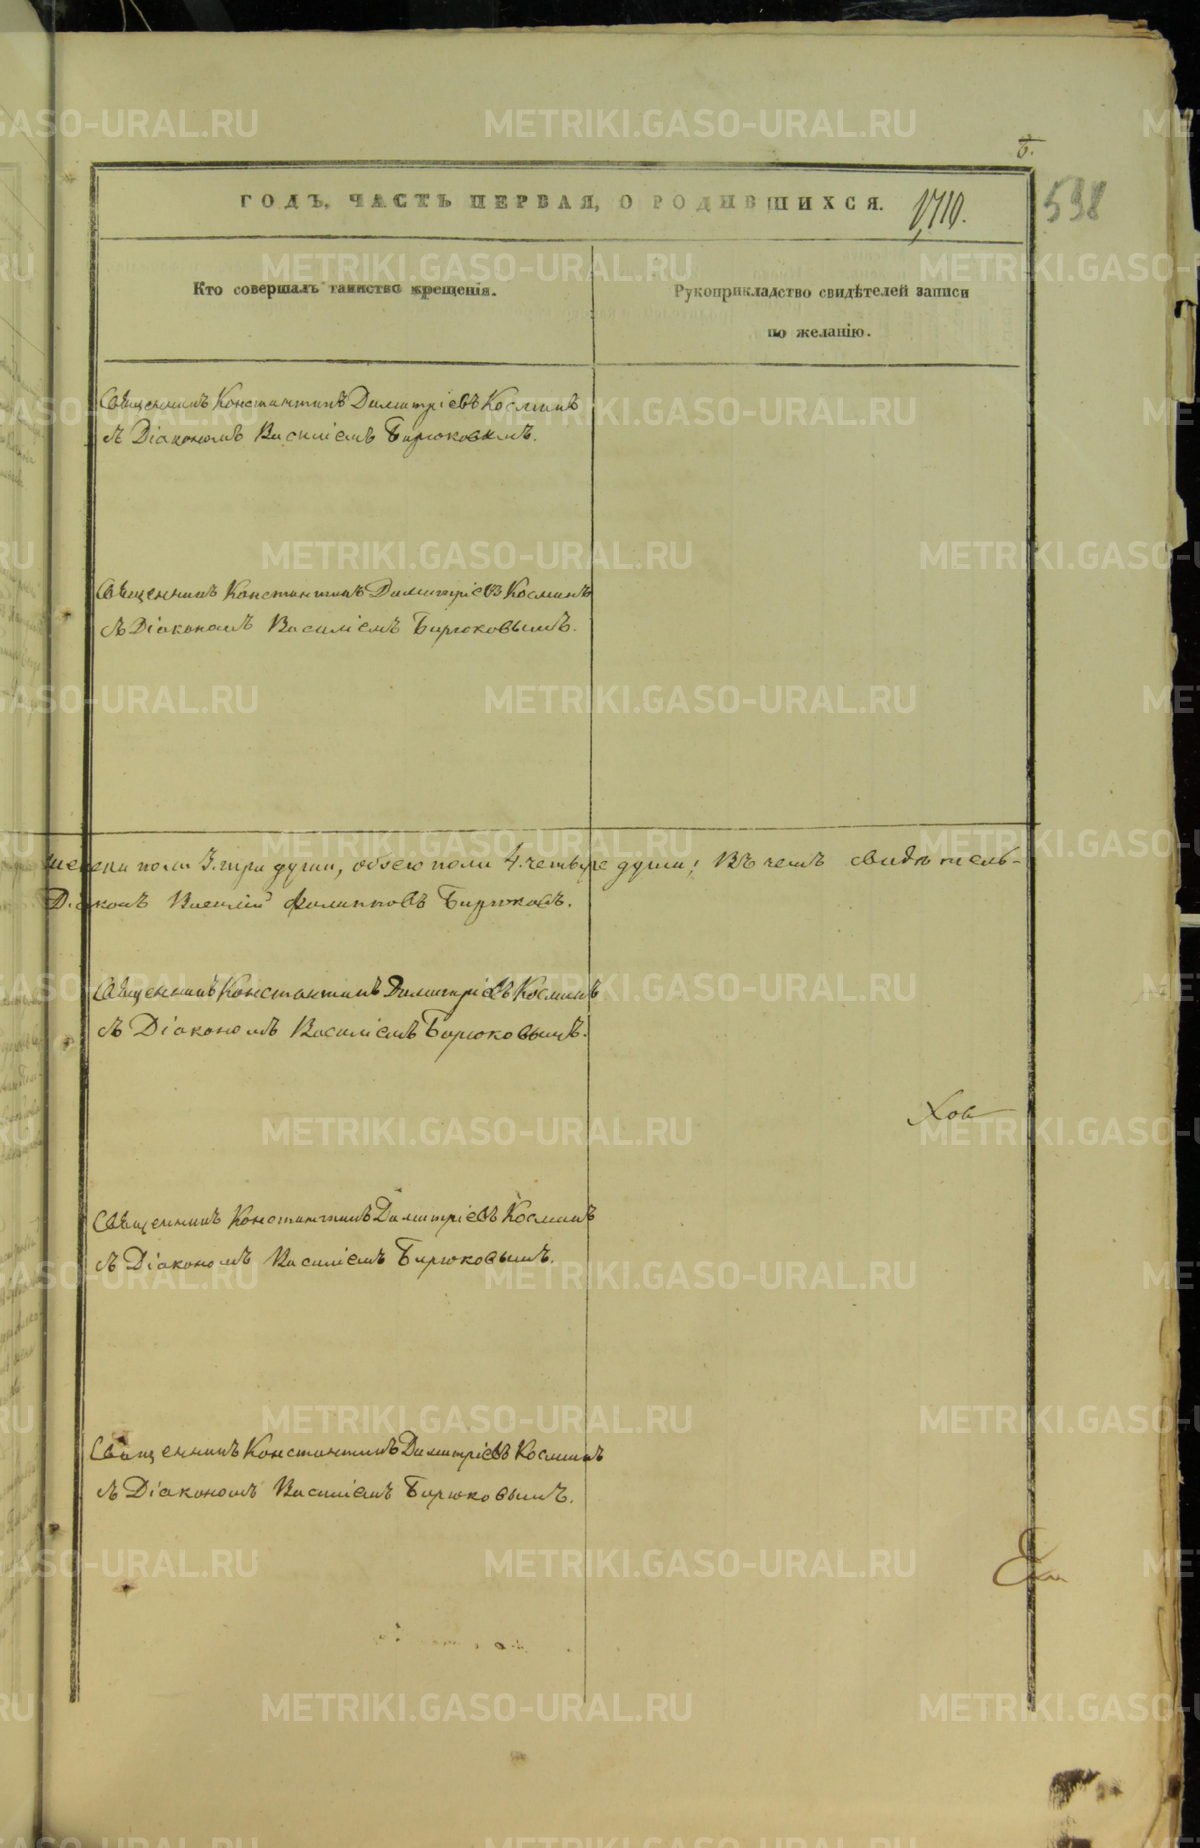 6.
ГОДЪ, ЧАСТЬ ПЕРВАЯ, О РОДИВШИХСЯ.
1,710.
598
Кто совершалъ таинство крещенія.
Рукоприкладство свидѣтелей записи
по желанію.
Священникъ Константинъ Димитріевъ Косминъ
съ Діакономъ Василіемъ Бирюковымъ.
Священникъ Константинъ Димитріевъ Косминъ
съ Діакономъ Василіемъ Бирюковымъ.
женска пола 3. три души, обоего пола 4. четыре души; Въ чемъ свидѣтель-
Діаконъ Василій Филипповъ Бирюковъ.
Священникъ Константинъ Димитріевъ Косминъ
съ Діакономъ Василіемъ Бирюковымъ.
Хов
Священникъ Константинъ Димитріевъ Косминъ
съ Діакономъ Василіемъ Бирюковымъ.
Священникъ Константинъ Димитріевъ Косминъ
съ Діакономъ Василіемъ Бирюковымъ.
METRIKI.GASO-URAL.RU